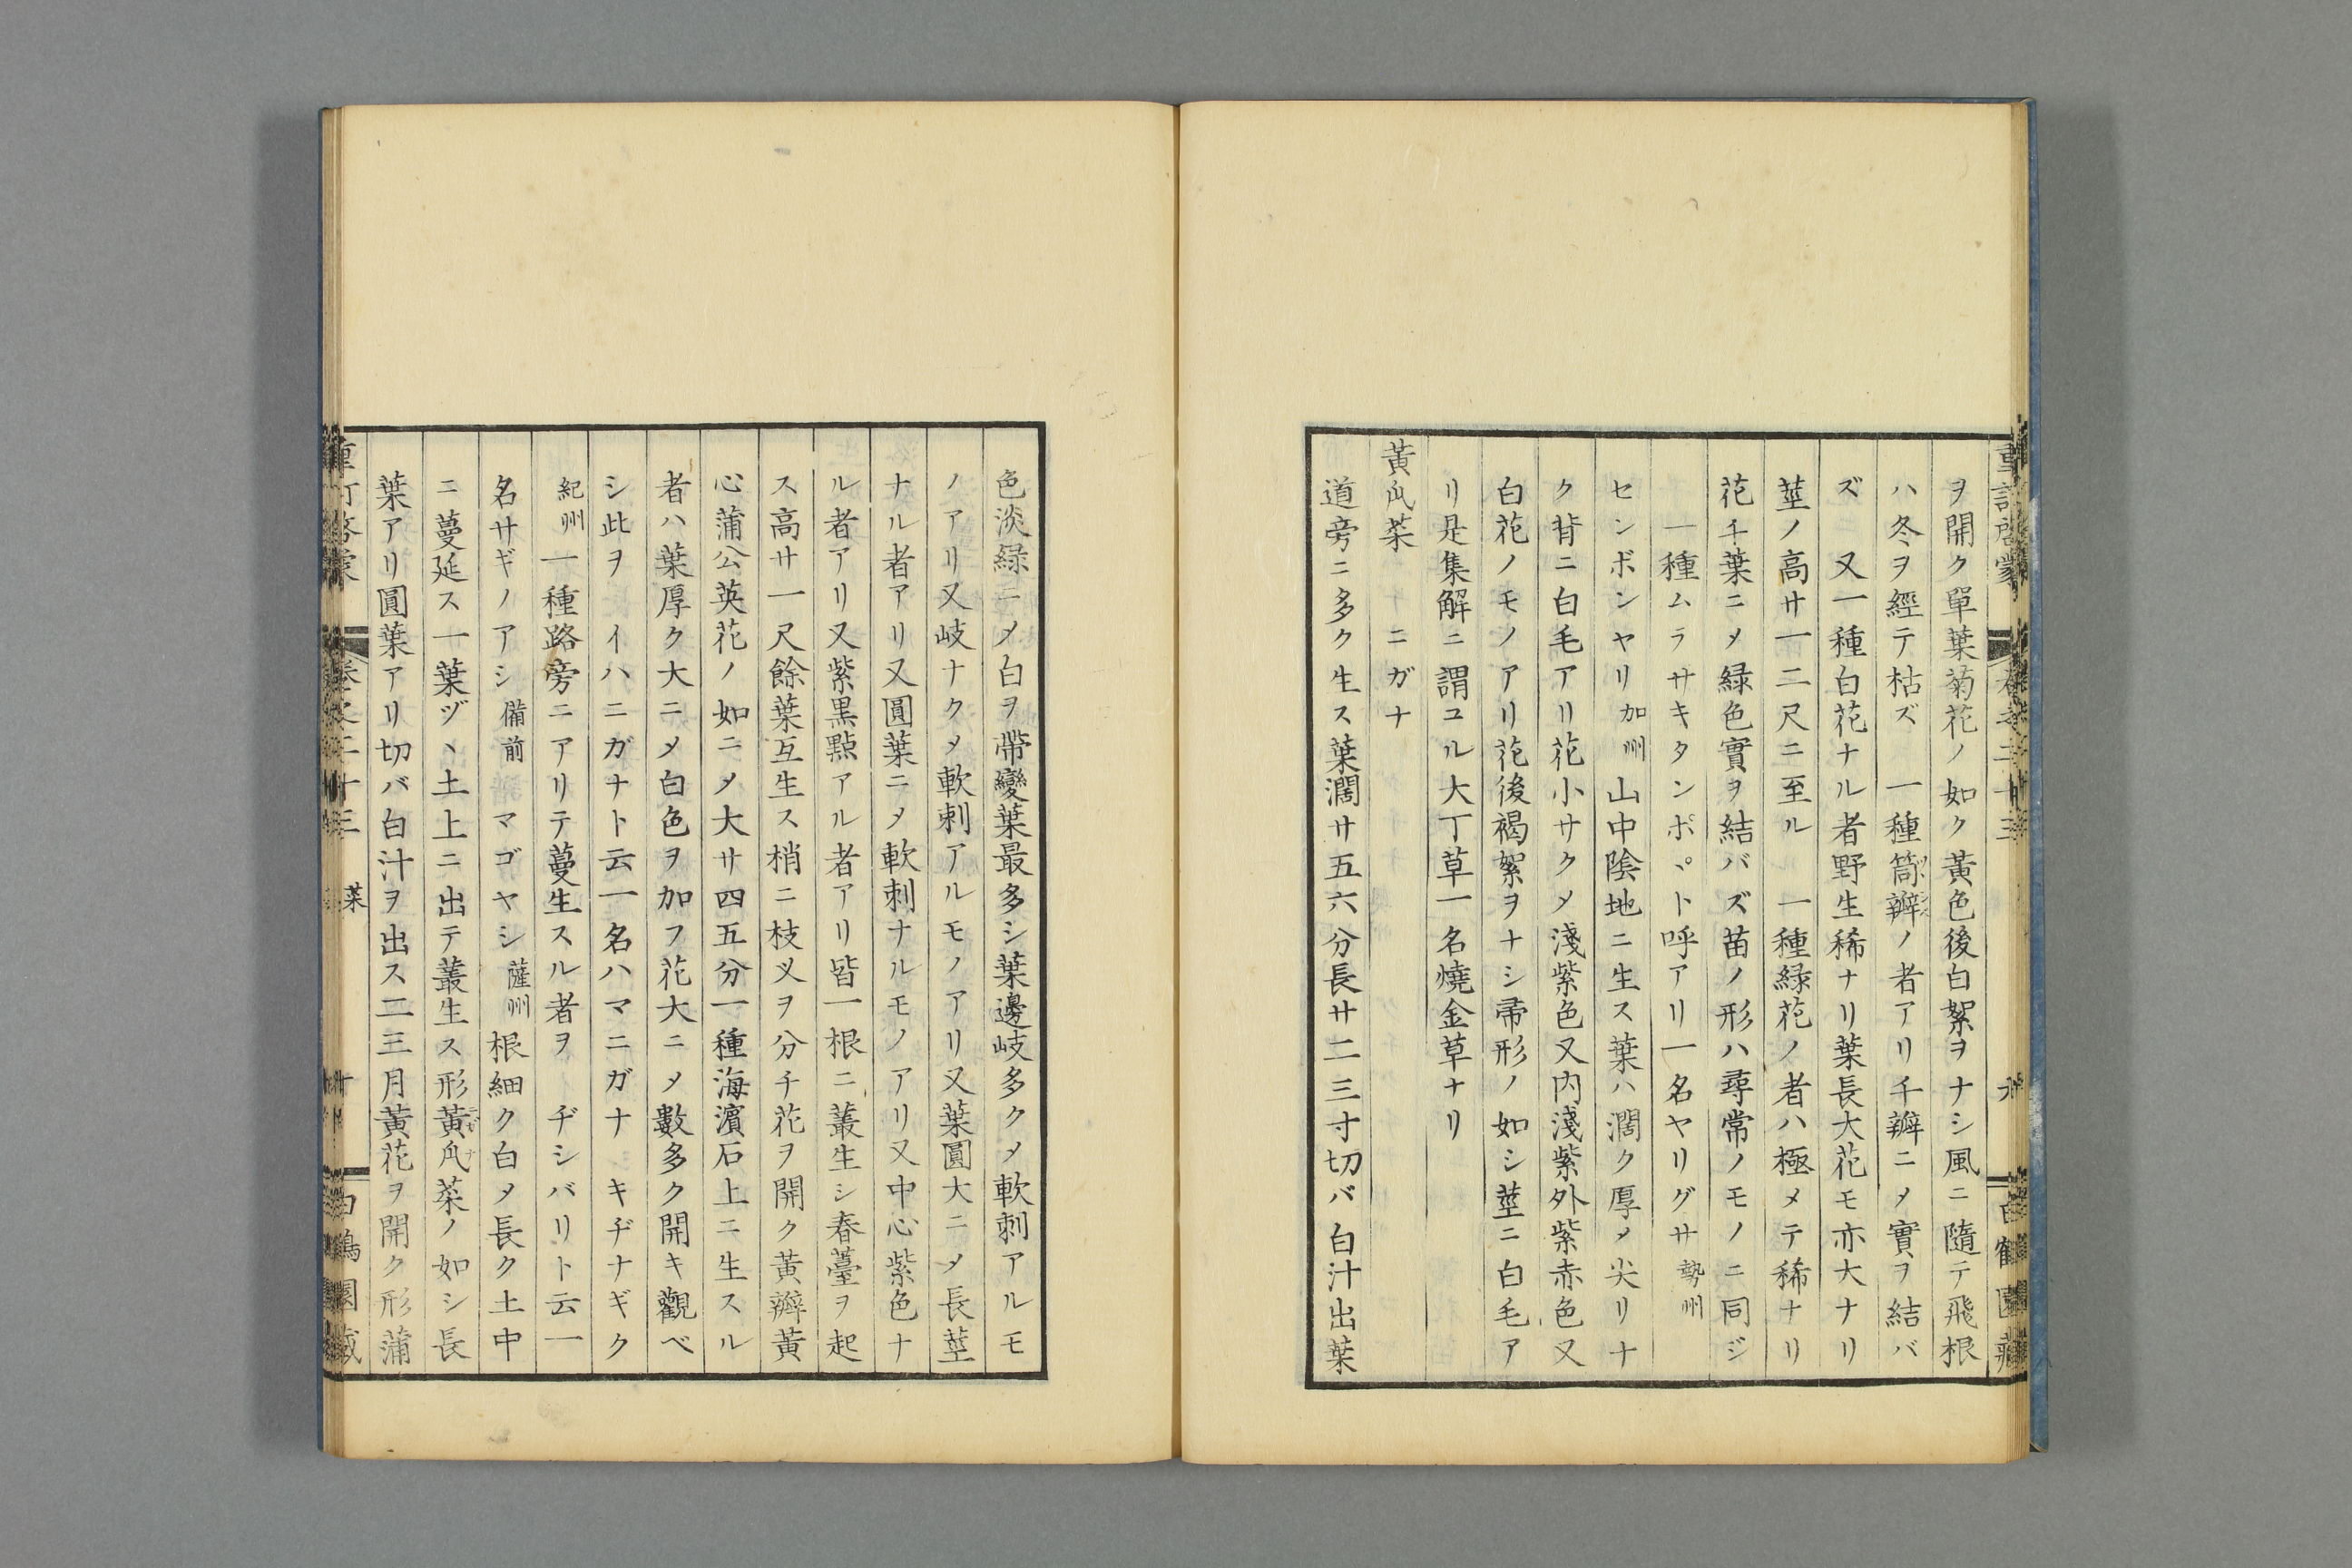 ヲ開ク單葉菊花ノ如ク黃色後白絮ヲナシ風ニ隨テ飛根
ハ冬ヲ經テ枯ズ 一種筒瓣ノ者アリ千瓣ニメ實ヲ結バ
ズ 又一種白花ナル者野生稀ナリ葉長大花モ亦大ナリ
莖ノ高サ一二尺ニ至ル 一種緑花ノ者ハ極メテ稀ナリ
花千葉ニメ緑色實ヲ結バズ苗ノ形ハ尋常ノモノニ同ジ
一種ムラサキタンポヽト呼アリ一名ヤリグサ勢州
センボンヤリ加州山中陰地ニ生ス葉ハ濶ク厚メ尖リナ
ク背ニ白毛アリ花小サクメ淺紫色又内淺紫外紫赤色又
白花ノモノアリ花後褐絮ヲナシ帚形ノ如シ莖ニ白毛ア
リ是集解ニ謂ユル大丁草一名燒金草ナリ
黃瓜菜 ニガナ
道旁ニ多ク生ス葉濶サ五六分長サ二三寸切バ白汁出葉
色淡緑ニメ白ヲ帶變葉最多シ葉邊岐多クメ軟刺アルモ
ノアリ又岐ナクメ軟刺アルモノアリ又葉圓大ニメ長莖
ナル者アリ又圓葉ニメ軟刺ナルモノアリ又中心紫色ナ
ル者アリ又紫黒點アル者アリ皆一根ニ叢生シ春薹ヲ起
ス高サ一尺餘葉互生ス梢ニ枝义ヲ分チ花ヲ開ク黃瓣黃
心蒲公英花ノ如ニメ大サ四五分一種海濵石上ニ生スル
者ハ葉厚ク大ニメ白色ヲ加フ花大ニメ數多ク開キ觀ベ
シ此ヲ イハニガナト云一名ハマニガナ キヂナギク
紀州 一種路旁ニアリテ蔓生スル者ヲ ヂシバリト云一
名サギノアシ備前 マゴヤシ薩州 根細ク白メ長ク土中
ニ蔓延ス一葉ヅヽ土上ニ出テ叢生ス形黃瓜菜ノ如シ長
葉アリ圓葉アリ切バ白汁ヲ出ス二三月黃花ヲ開ク形蒲